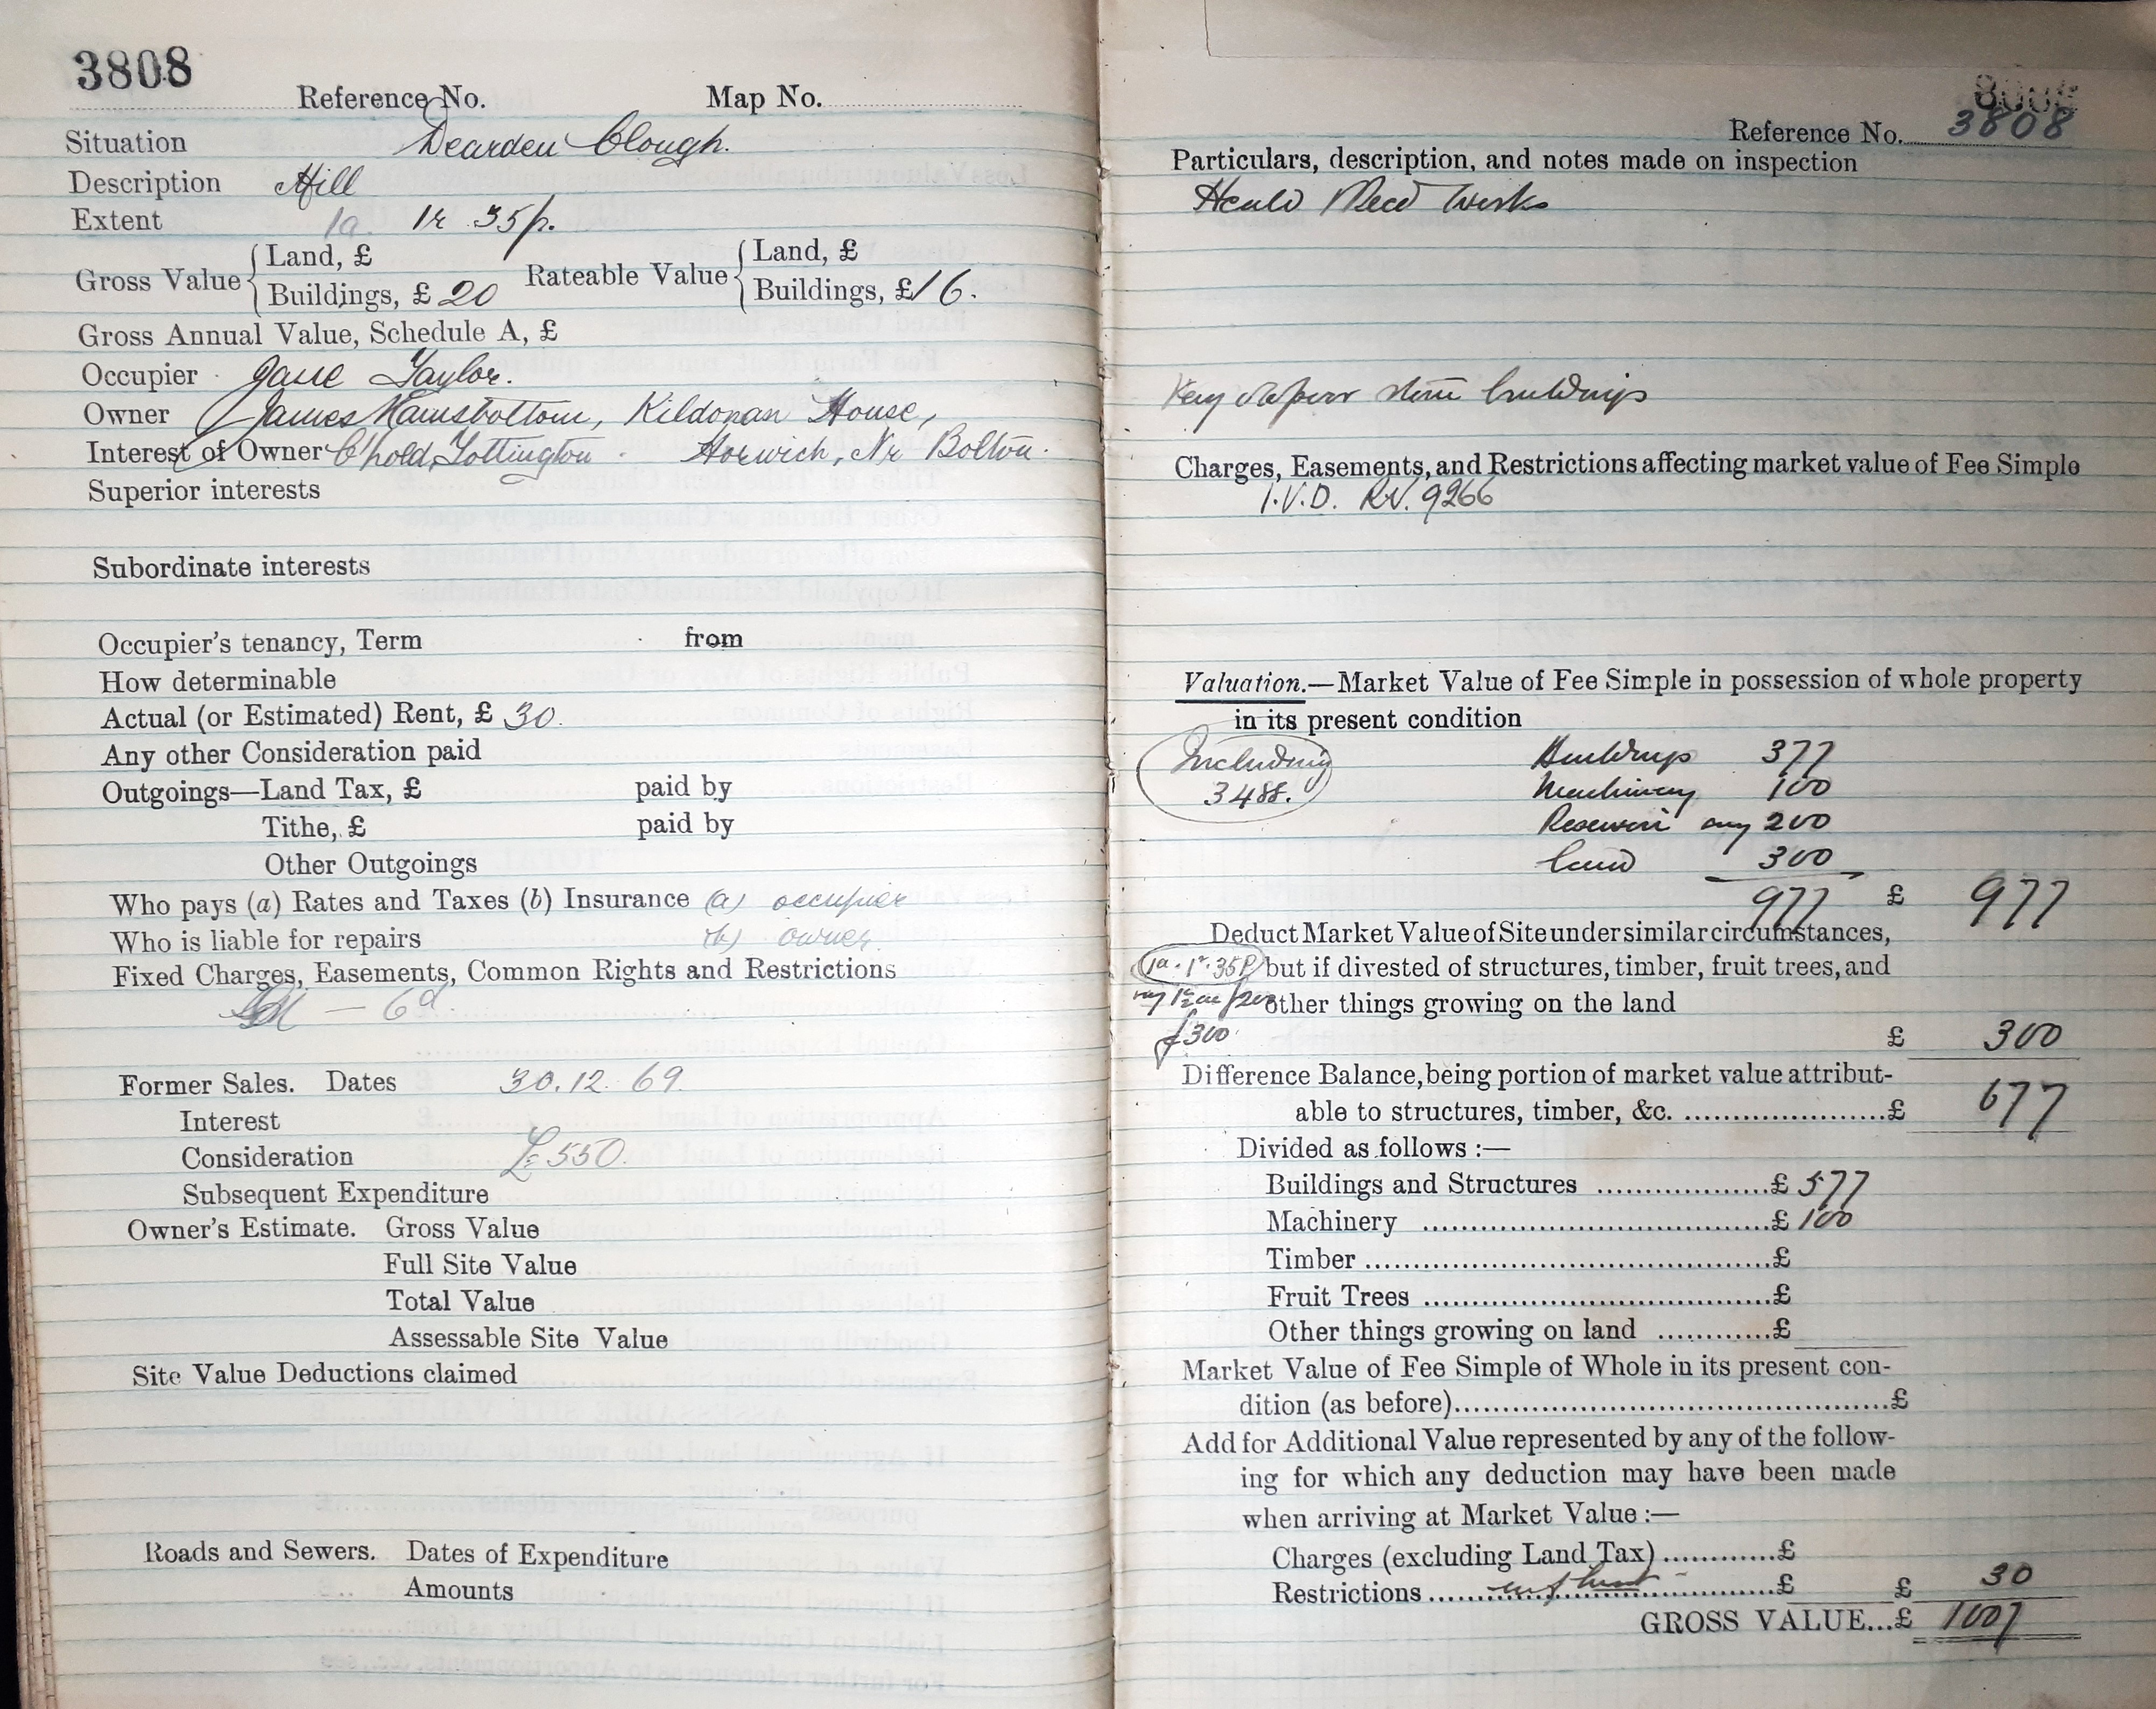 3808
Reference No. Map No.
Situation Dearden Clough.
Description Mill
Extent 1a. 1r 35p.
Gross Value { Land, £
Buildings, £ 20
Rateable Value { Land, £
Buildings, £ 16.
Gross Annual Value, Schedule A, £
Occupier Jane Taylor.
Owner James Ramsbottom, Kildonan House,
Interest of Owner C'hold, Tottington. Horwich, Nr Bolton.
Superior interests
Subordinate interests
Occupier's tenancy, Term from
How determinable
Actual (or Estimated) Rent, £ 30.
Any other Consideration paid
Outgoings—Land Tax, £ paid by
Tithe, £ paid by
Other Outgoings
Who pays (a) Rates and Taxes (b) Insurance (a) occupier
Who is liable for repairs (b) owner.
Fixed Charges, Easements, Common Rights and Restrictions
— 6d.
Former Sales. Dates 30.12.69.
Interest
Consideration £550.
Subsequent Expenditure
Owner's Estimate. Gross Value
Full Site Value
Total Value
Assessable Site Value
Site Value Deductions claimed
Roads and Sewers. Dates of Expenditure
Amounts
Reference No. 3808
Particulars, description, and notes made on inspection
Heald Mead Works
Very poor stone buildings
Charges, Easements, and Restrictions affecting market value of Fee Simple
I.V.D. RV. 9266
Valuation.—Market Value of Fee Simple in possession of whole property
in its present condition
Including
3488.
Buildings 377
Machinery 100
Reservoir say 200
Land 300
977 £ 977
Deduct Market Value of Site under similar circumstances,
1a. 1r. 35P but if divested of structures, timber, fruit trees, and
say 1½ ac other things growing on the land
£300
£ 300
Difference Balance, being portion of market value attribut-
able to structures, timber, &c. £ 677
Divided as follows :—
Buildings and Structures £ 577
Machinery £ 100
Timber £
Fruit Trees £
Other things growing on land £
Market Value of Fee Simple of Whole in its present con-
dition (as before) £
Add for Additional Value represented by any of the follow-
ing for which any deduction may have been made
when arriving at Market Value :—
Charges (excluding Land Tax) £
Restrictions £ £ 30
GROSS VALUE...£ 1007